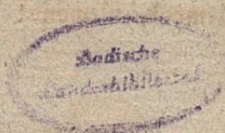 Badische
Landesbibliothek